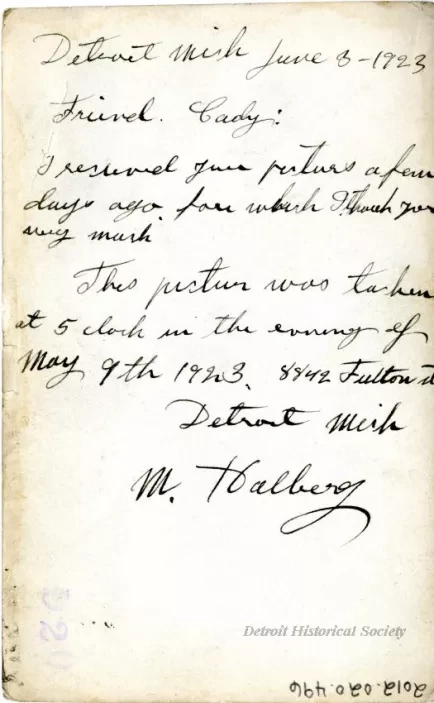 Detroit Mich June 3-1923
Friend. Cady:
I received your picturs a few
days ago for which I thank you
very much.
This pictur was taken
at 5 clock in the evening of
May 9th 1923. 8842 Fulton st
Detroit Mich
M. Halberg
Detroit Historical Society
2012.020.496